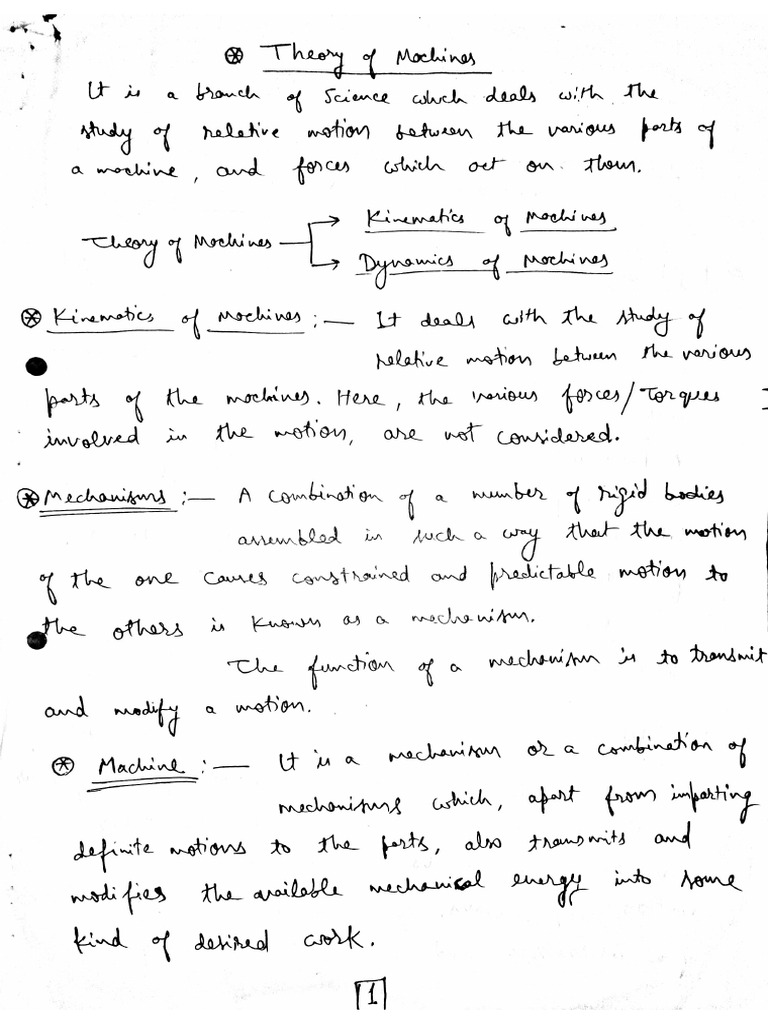 Theory of Machines
It is a branch of Science which deals with the
study of relative motion between the various parts of
a machine, and forces which act on them.
Theory of Machines → Kinematics of Machines
→ Dynamics of Machines
Kinematics of Machines :— It deals with the study of
relative motion between the various
parts of the machines. Here, the various forces/Torques
involved in the motion, are not considered.
Mechanisms :— A combination of a number of rigid bodies
assembled in such a way that the motion
of the one causes constrained and predictable motion to
the others is known as a mechanism.
The function of a mechanism is to transmit
and modify a motion.
Machine :— It is a mechanism or a combination of
mechanisms which, apart from imparting
definite motions to the parts, also transmits and
modifies the available mechanical energy into some
kind of desired work.
1